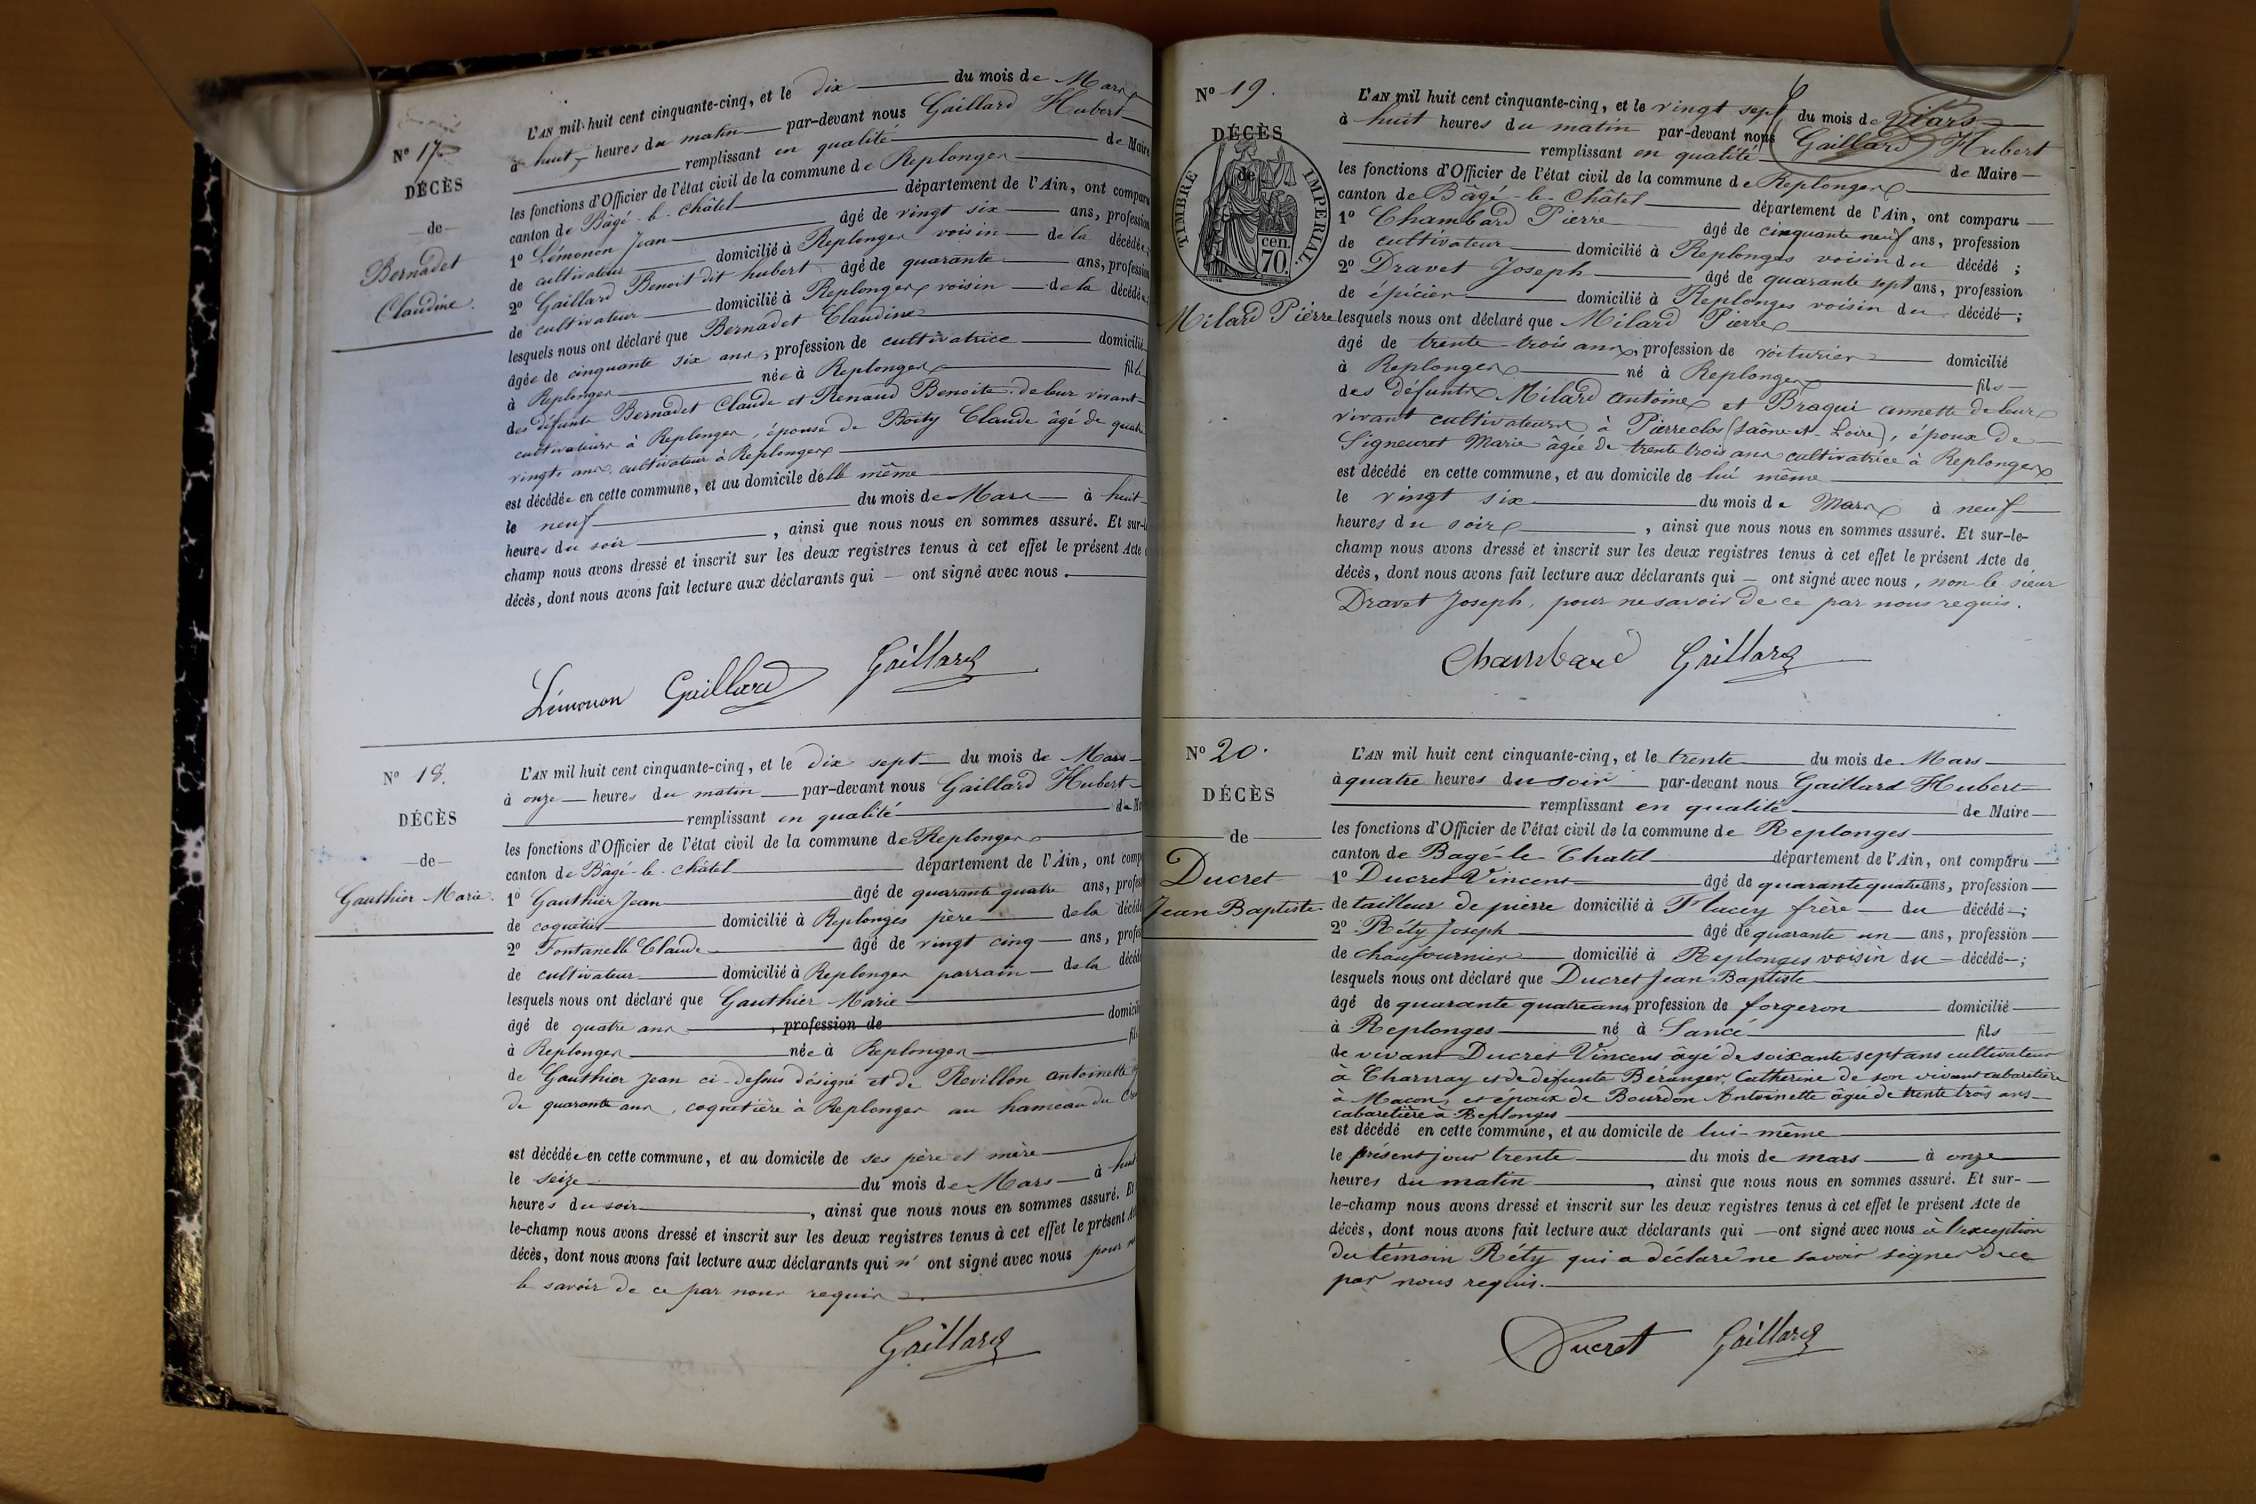 N° 17
DÉCÈS
de
Bernadet
Claudine.
L'AN mil huit cent cinquante-cinq, et le dix du mois de Mars
à huit heures du matin par-devant nous Gaillard Hubert
remplissant en qualité de Maire
les fonctions d'Officier de l'état civil de la commune de Replonges
canton de Bâgé-le-châtel département de l'Ain, ont comparu
1° Lémonon Jean âgé de vingt six ans, profession
de cultivateur domicilié à Replonges voisin de la décédée;
2° Gaillard Benoit dit hubert âgé de quarante ans, profession
de cultivateur domicilié à Replonges voisin de la décédée;
lesquels nous ont déclaré que Bernadet Claudine
âgée de cinquante six ans, profession de cultivatrice domicilié
à Replonges née à Replonges fille
des défunts Bernadet Claude et Renaud Benoite de leur vivant
cultivateurs à Replonges, épouse de Boity Claude âgé de quatre
vingts ans, cultivateur à Replonges
est décédée en cette commune, et au domicile d'elle même
le neuf du mois de Mars à huit
heures du soir, ainsi que nous nous en sommes assuré. Et sur-le
champ nous avons dressé et inscrit sur les deux registres tenus à cet effet le présent Acte
décès, dont nous avons fait lecture aux déclarants qui — ont signé avec nous.
Lémonon Gaillard Gaillard
N° 18.
DÉCÈS
de
Gauthier Marie.
L'AN mil huit cent cinquante-cinq, et le dix sept du mois de Mars
à onze heures du matin par-devant nous Gaillard Hubert
remplissant en qualité de M
les fonctions d'Officier de l'état civil de la commune de Replonges
canton de Bâgé-le-châtel département de l'Ain, ont comp
1° Gauthier Jean âgé de quarante quatre ans, profes
de coquetier domicilié à Replonges père de la décédé
2° Fontanelle Claude âgé de vingt cinq ans, profes
de cultivateur domicilié à Replonges parrain de la décédé
lesquels nous ont déclaré que Gauthier Marie
âgé de quatre ans, profession de domicili
à Replonges née à Replonges fil
de Gauthier Jean ci-dessus désigné et de Revillon antoinette
de quarante ans, coquetière à Replonges au hameau du
est décédée en cette commune, et au domicile de ses père et mère
le seize du mois de Mars à huit
heures du soir, ainsi que nous nous en sommes assuré. Et
le-champ nous avons dressé et inscrit sur les deux registres tenus à cet effet le présent A
décès, dont nous avons fait lecture aux déclarants qui n' ont signé avec nous pour ne
le savoir de ce par nous requis.
Gaillard
N° 19.
DÉCÈS
de
TIMBRE IMPERIAL.
cen.
70.
Milard Pierre
L'AN mil huit cent cinquante-cinq, et le vingt sept du mois de Mars
à huit heures du matin par-devant nous Gaillard Hubert
remplissant en qualité de Maire
les fonctions d'Officier de l'état civil de la commune de Replonges
canton de Bâgé-le-Châtel département de l'Ain, ont comparu
1° Chambard Pierre âgé de cinquante neuf ans, profession
de cultivateur domicilié à Replonges voisin du décédé;
2° Dravet Joseph âgé de quarante sept ans, profession
de épicier domicilié à Replonges voisin du décédé;
lesquels nous ont déclaré que Milard Pierre
âgé de trente-trois ans, profession de voiturier domicilié
à Replonges né à Replonges fils
des défunts Milard antoine et Braqui annette de leur
vivant cultivateurs à Pierreclos (Saône-et-Loire), époux de
Signeuret Marie âgée de trente trois ans cultivatrice à Replonges
est décédé en cette commune, et au domicile de lui même
le vingt six du mois de Mars à neuf
heures du soir, ainsi que nous nous en sommes assuré. Et sur-le-
champ nous avons dressé et inscrit sur les deux registres tenus à cet effet le présent Acte de
décès, dont nous avons fait lecture aux déclarants qui — ont signé avec nous, non le sieur
Dravet Joseph, pour ne savoir de ce par nous requis.
Chambard Gaillard
N° 20.
DÉCÈS
de
Ducret
Jean Baptiste.
L'AN mil huit cent cinquante-cinq, et le trente du mois de Mars
à quatre heures du soir par-devant nous Gaillard Hubert
remplissant en qualité de Maire
les fonctions d'Officier de l'état civil de la commune de Replonges
canton de Bagé-le-Chatel département de l'Ain, ont comparu
1° Ducret Vincent âgé de quarante quatre ans, profession
de tailleur de pierre domicilié à Flacey frère du décédé;
2° Réty Joseph âgé de quarante un ans, profession
de chaufournier domicilié à Replonges voisin du décédé;
lesquels nous ont déclaré que Ducret Jean Baptiste
âgé de quarante quatre ans, profession de forgeron domicilié
à Replonges né à Sancé fils
de vivant Ducret Vincent âgé de soixante sept ans cultivateur
à Charnay et de défunte Béranger Catherine de son vivant cabaretière
à Macon, et époux de Bourdon Antoinette âgée de trente trois ans
cabaretière à Replonges
est décédé en cette commune, et au domicile de lui-même
le présent jour trente du mois de mars à onze
heures du matin, ainsi que nous nous en sommes assuré. Et sur-
le-champ nous avons dressé et inscrit sur les deux registres tenus à cet effet le présent Acte de
décès, dont nous avons fait lecture aux déclarants qui — ont signé avec nous à l'exception
du témoin Réty qui a déclaré ne savoir signer de ce
par nous requis.
Ducret Gaillard